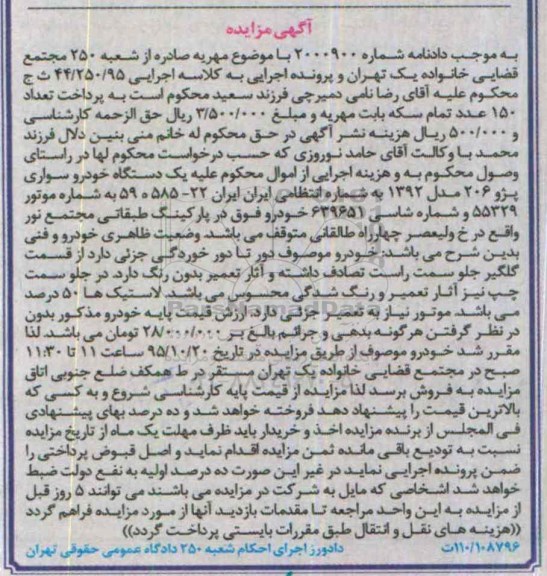 آگهی مزایده
به موجب دادنامه شماره ۲۰۰۰۹۰۰ با موضوع مهریه صادره از شعبه ۲۵۰ مجتمع
قضایی خانواده یک تهران و پرونده اجرایی به کلاسه اجرایی ۴۴/۲۵۰/۹۵ ث ج
محکوم علیه آقای رضا نامی دمیرچی فرزند سعید محکوم است به پرداخت تعداد
۱۵۰ عدد تمام سکه بابت مهریه و مبلغ ۳/۵۰۰/۰۰۰ ریال حق الزحمه کارشناسی
و ۵۰۰/۰۰۰ ریال هزینه نشر آگهی در حق محکوم له خانم منی بنین دلال فرزند
محمد با وکالت آقای حامد نوروزی که حسب درخواست محکوم لها در راستای
وصول محکوم به و هزینه اجرایی از اموال محکوم علیه یک دستگاه خودرو سواری
پژو ۲۰۶ مدل ۱۳۹۲ به شماره انتظامی ایران ایران ۲۲- ۵۸۵ ه ۵۹ به شماره موتور
۵۵۳۲۹ و شماره شاسی ۶۳۹۶۵۱ خودرو فوق در پارکینگ طبقاتی مجتمع نور
واقع در خ ولیعصر چهارراه طالقانی متوقف می باشد. وضعیت ظاهری خودرو و فنی
بدین شرح می باشد: خودرو موصوف دور تا دور خوردگی جزئی دارد از قسمت
گلگیر جلو سمت راست تصادف داشته و آثار تعمیر بدون رنگ دارد. در جلو سمت
چپ نیز آثار تعمیر و رنگ شدگی محسوس می باشد. لاستیک ها ۵۰ درصد
می باشد. موتور نیاز به تعمیر جزئی دارد. ارزش قیمت پایه خودرو مذکور بدون
در نظر گرفتن هرگونه بدهی و جرائم بالغ بر ۲۸/۰۰۰/۰۰۰ تومان می باشد. لذا
مقرر شد خودرو موصوف از طریق مزایده در تاریخ ۹۵/۱۰/۲۰ ساعت ۱۱ تا ۱۱:۳۰
صبح در مجتمع قضایی خانواده یک تهران مستقر در ط همکف ضلع جنوبی اتاق
مزایده به فروش برسد لذا مزایده از قیمت پایه کارشناسی شروع و به کسی که
بالاترین قیمت را پیشنهاد دهد فروخته خواهد شد و ده درصد بهای پیشنهادی
فی المجلس از برنده مزایده اخذ و خریدار باید ظرف مهلت یک ماه از تاریخ مزایده
نسبت به تودیع باقی مانده ثمن مزایده اقدام نماید و اصل قبوض پرداختی را
ضمن پرونده اجرایی نماید در غیر این صورت ده درصد اولیه به نفع دولت ضبط
خواهد شد اشخاصی که مایل به شرکت در مزایده می باشند می توانند ۵ روز قبل
از مزایده به این واحد مراجعه تا مقدمات بازدید آنها از مورد مزایده فراهم گردد
((هزینه های نقل و انتقال طبق مقررات بایستی پرداخت گردد))
۱۱۰/۱۰۸۷۹۶ت دادورز اجرای احکام شعبه ۲۵۰ دادگاه عمومی حقوقی تهران